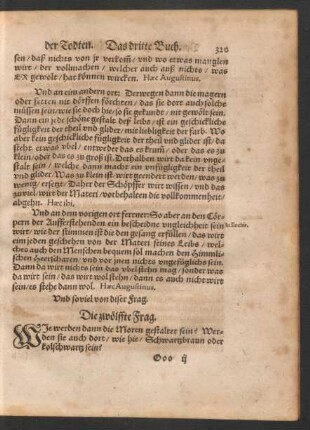 der Todten. Das dritte Buch. 320
sen/ daß nichts von jr verkom̃/ vnd wo etwas manglen
wirt/ der vollmachen/ welcher auch auß nichts/ was
ER gewolt/ hat können wircken. Hæc Augustinus.
Vnd an ein andern ort: Derwegen dann die magern
oder fetten nit dörffen förchten/ das sie dort auch solche
müssen sein/ wie sie doch hie/ so sie gekundt/ nit gewölt sein.
Dann ein jede schöne gestalt deß leibs/ ist ein geschickliche
fügligkeit der theil vnd glider/ mit liebligkeit der farb. Wo
aber kein geschickliche fügligkeit der theil vnd glider ist/ da
stehts etwas vbel/ entweder das es krum̃/ oder das es zu
klein/ oder das es zu groß ist. Derhalben wirt da kein vnge-
stalt sein/ welche dann macht ein vnfügligkeit der theil
vnd glider. Was zu klein ist/ wirt geendert werden/ was zu
wenig/ ersetzt/ Daher der Schöpffer wirt wissen/ vnd das
zuwiel/ wirt der Materi/ vorbehalten die vollkommenheit/
abgehn. Hæc ibi.
Vnd an dem vorigen ort ferrner: So aber an den Cör-
pern der Aufferstehenden ein bescheidne vngleichheit sein
wirt/ wie der stimmen ist die den gesang erfüllen/ das wirt
ein jeden geschehen von der Materi seines Leibs/ wel-
ches auch den Menschen bequem sol machen den Himmli-
schen Heerscharen/ vnd vor jnen nichts vngefüglichs sein.
Dann da wirt nichts sein das vbel stehn mag/ sonder was
da wirt sein/ das wirt wol stehn/ dann es auch nicht wirt
sein/ es stehe dann wol. Hæc Augustinus.
Vnd soviel von diser Frag.
Die zwölffte Frag.
WJe werden dann die Moren gestaltet sein? Wer-
den sie auch dort/ wie hie/ Schwartzbraun oder
kolschwartz sein?
Ooo ij